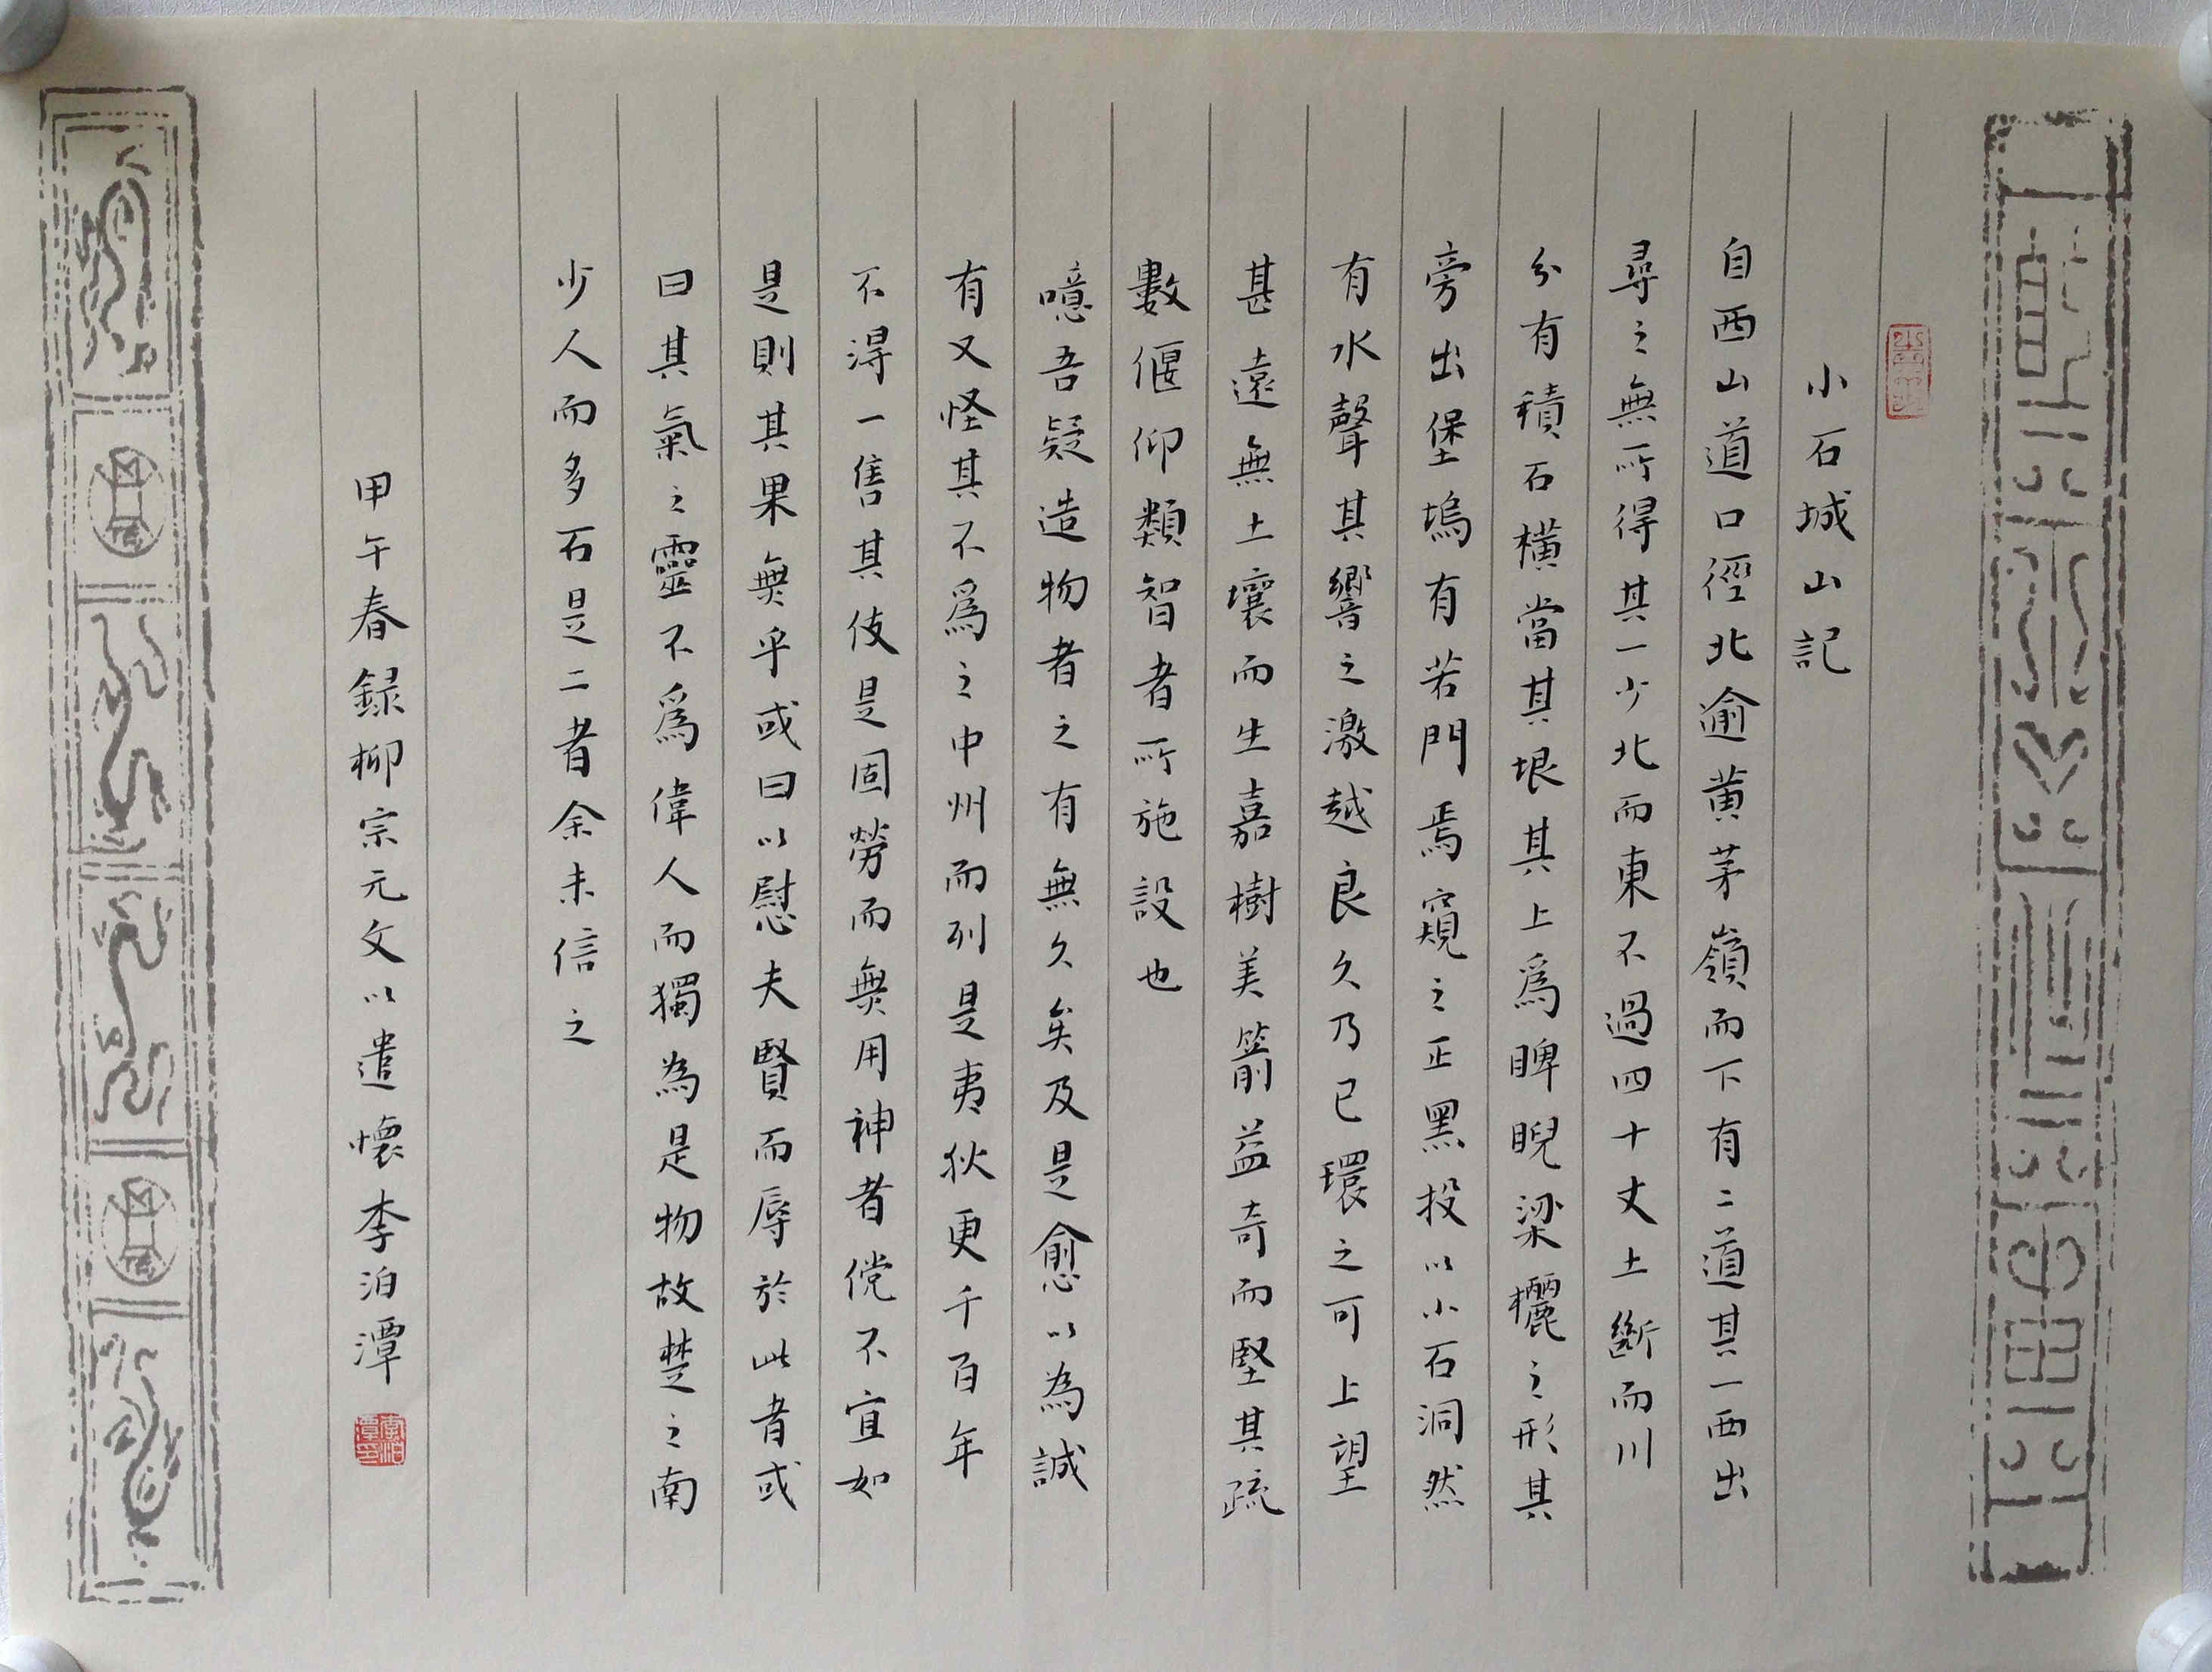 小石城山記
自西山道口徑北逾黄茅嶺而下有二道其一西出
尋之無所得其一少北而東不過四十丈土斷而川
分有積石橫當其垠其上爲睥睨梁欐之形其
旁出堡塢有若門焉窺之正黑投以小石洞然
有水聲其響之激越良久乃已環之可上望
甚遠無土壤而生嘉樹美箭益奇而堅其疏
數偃仰類智者所施設也
噫吾疑造物者之有無久矣及是愈以為誠
有又怪其不爲之中州而列是夷狄更千百年
不得一售其伎是固勞而無用神者儻不宜如
是則其果無乎或曰以慰夫賢而辱於此者或
曰其氣之靈不爲偉人而獨為是物故楚之南
少人而多石是二者余未信之
甲午春録柳宗元文以遣懷李泊潭
李泊潭印